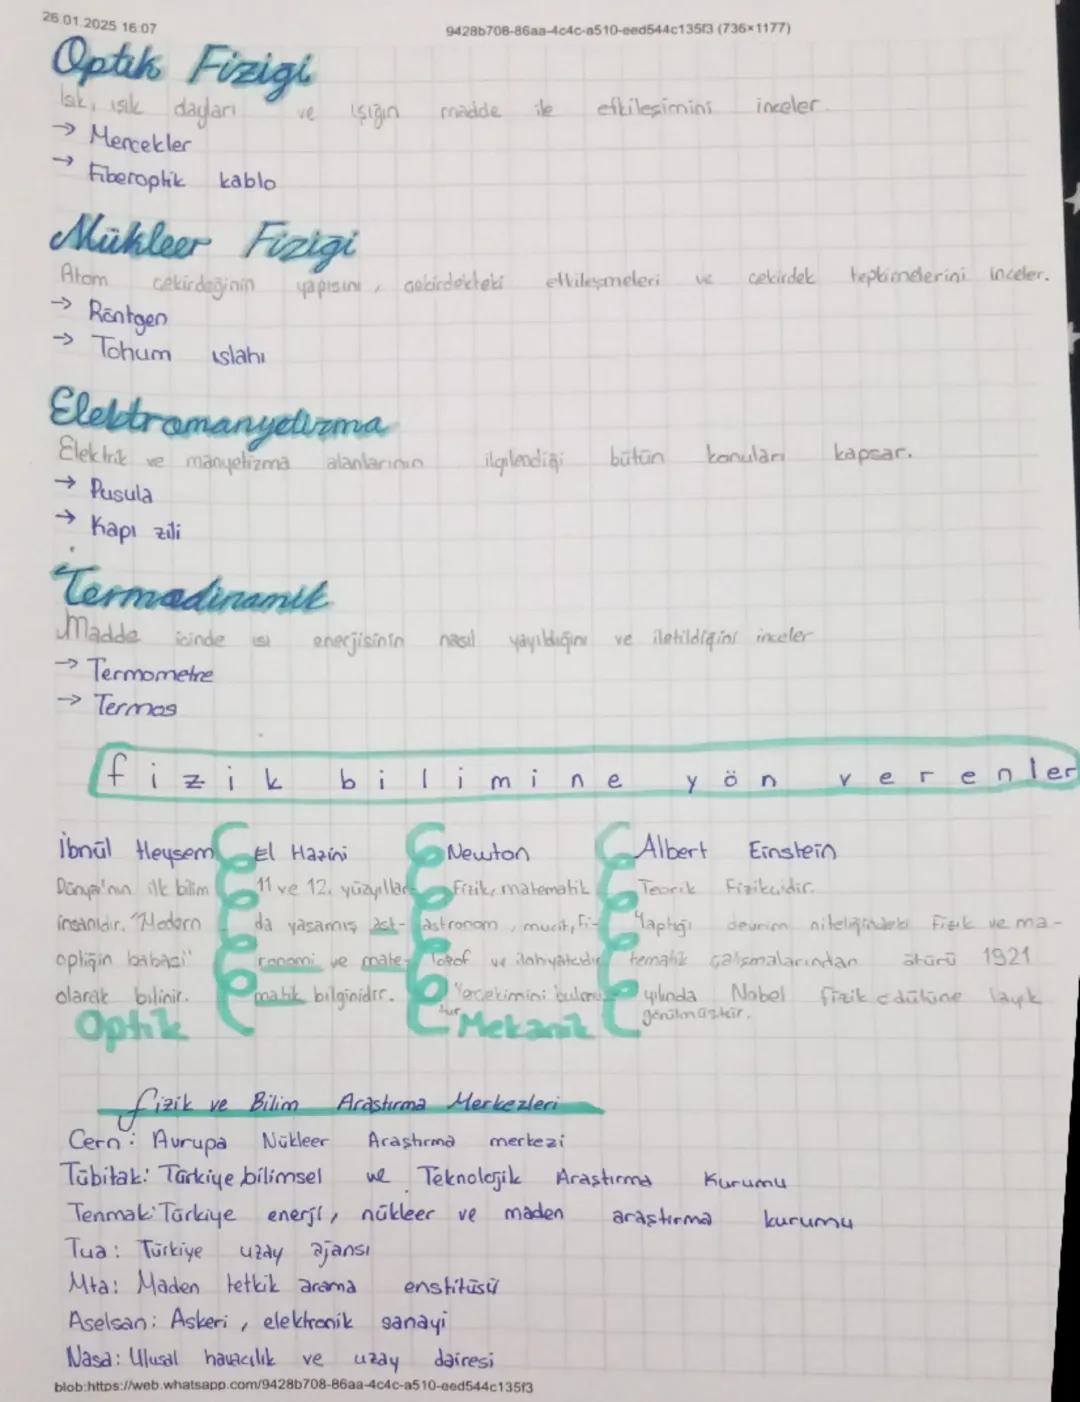 26.01.2025 16:07
9428b708-86aa-4c4c-a510-eed544c135f3 (736×1177)
Optik Fizigi
Işık, ışık dayları ve ışığın madde ile etkileşimini inceler.
→ Mercekler
→ Fiberoptik kablo
Mükleer Fizigi
Atom cekirdeğinin yapısını, cekirdekteki etkileşmeleri ve cekirdek tepkimelerini inceler.
→ Röntgen
→ Tohum ıslahı
Elektromanyetizma
Elektrik ve manyetizma alanlarının ilgilendiği bütün konuları kapsar.
→ Pusula
→ Kapı zili
Termodinamik
Madde icinde ısı enerjisinin nasıl yayıldığını ve iletildiğini inceler
→ Termometre
→ Termos
fizik bilimine yön verenler
İbnül Heysem
Dünya'nın ilk bilim
insanıdır. "Modern
optiğin babası"
olarak bilinir.
Optik
El Hazini
11 ve 12. yüzyıllar-
da yaşamış ast-
ronomi ve mate-
matik bilginidir.
Newton
Fizik, matematik
astronom, mucit, Fi-
lozof ve ilahiyatcıdır
Yercekimini bulmuş-
tur.
Mekanik
Albert Einstein
Teorik Fizikcidir.
Yaptığı devrim niteliğindeki Fizik ve ma-
tematik çalışmalarından ötürü 1921
yılında Nobel fizik ödülüne layık
görülmüştür.
Fizik ve Bilim Araştırma Merkezleri
Cern: Avrupa Nükleer Araştırma merkezi
Tübitak: Türkiye bilimsel ve Teknolojik Araştırma Kurumu
Tenmak: Türkiye enerji, nükleer ve maden araştırma kurumu
Tua: Türkiye uzay ajansı
Mta: Maden tetkik arama enstitüsü
Aselsan: Askeri, elektronik sanayi
Nasa: Ulusal havacılık ve uzay dairesi
blob:https://web.whatsapp.com/9428b708-86aa-4c4c-a510-eed544c135f3